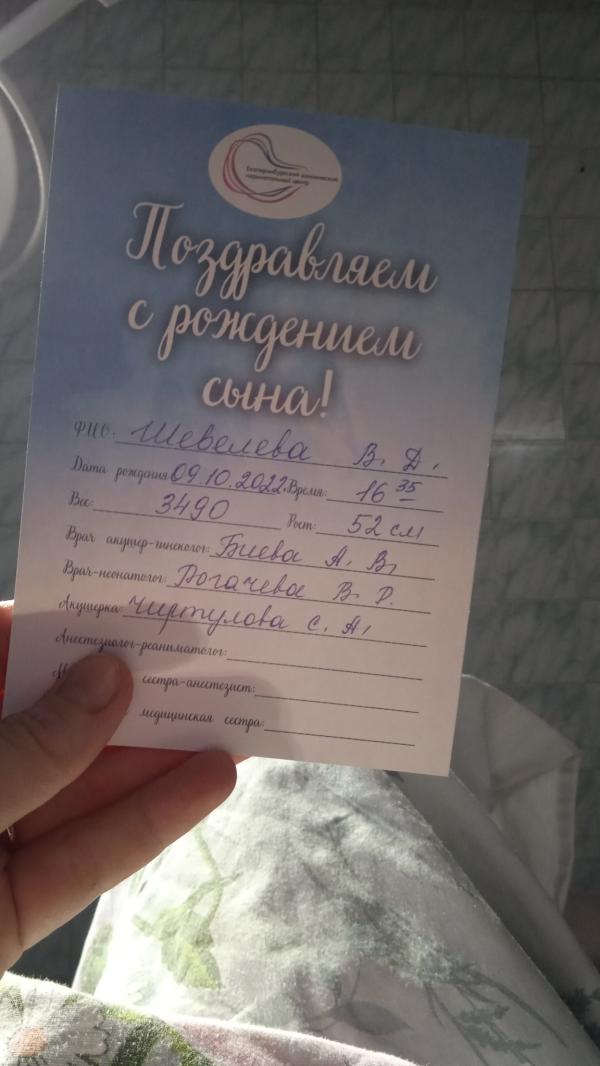 Екатеринбургский клинический
перинатальный центр
Поздравляем
с рождением
сына!
ФИО: Шевелева В. Д.
Дата рождения 09.10.2022. Время: 16 35
Вес: 3490 Рост: 52 см
Врач акушер-гинеколог: Биева А. В.
Врач-неонатолог: Рогачева В. Р.
Акушерка: Чиртулова С. А.
Анестезиолог-реаниматолог:
сестра-анестезист:
медицинская сестра: